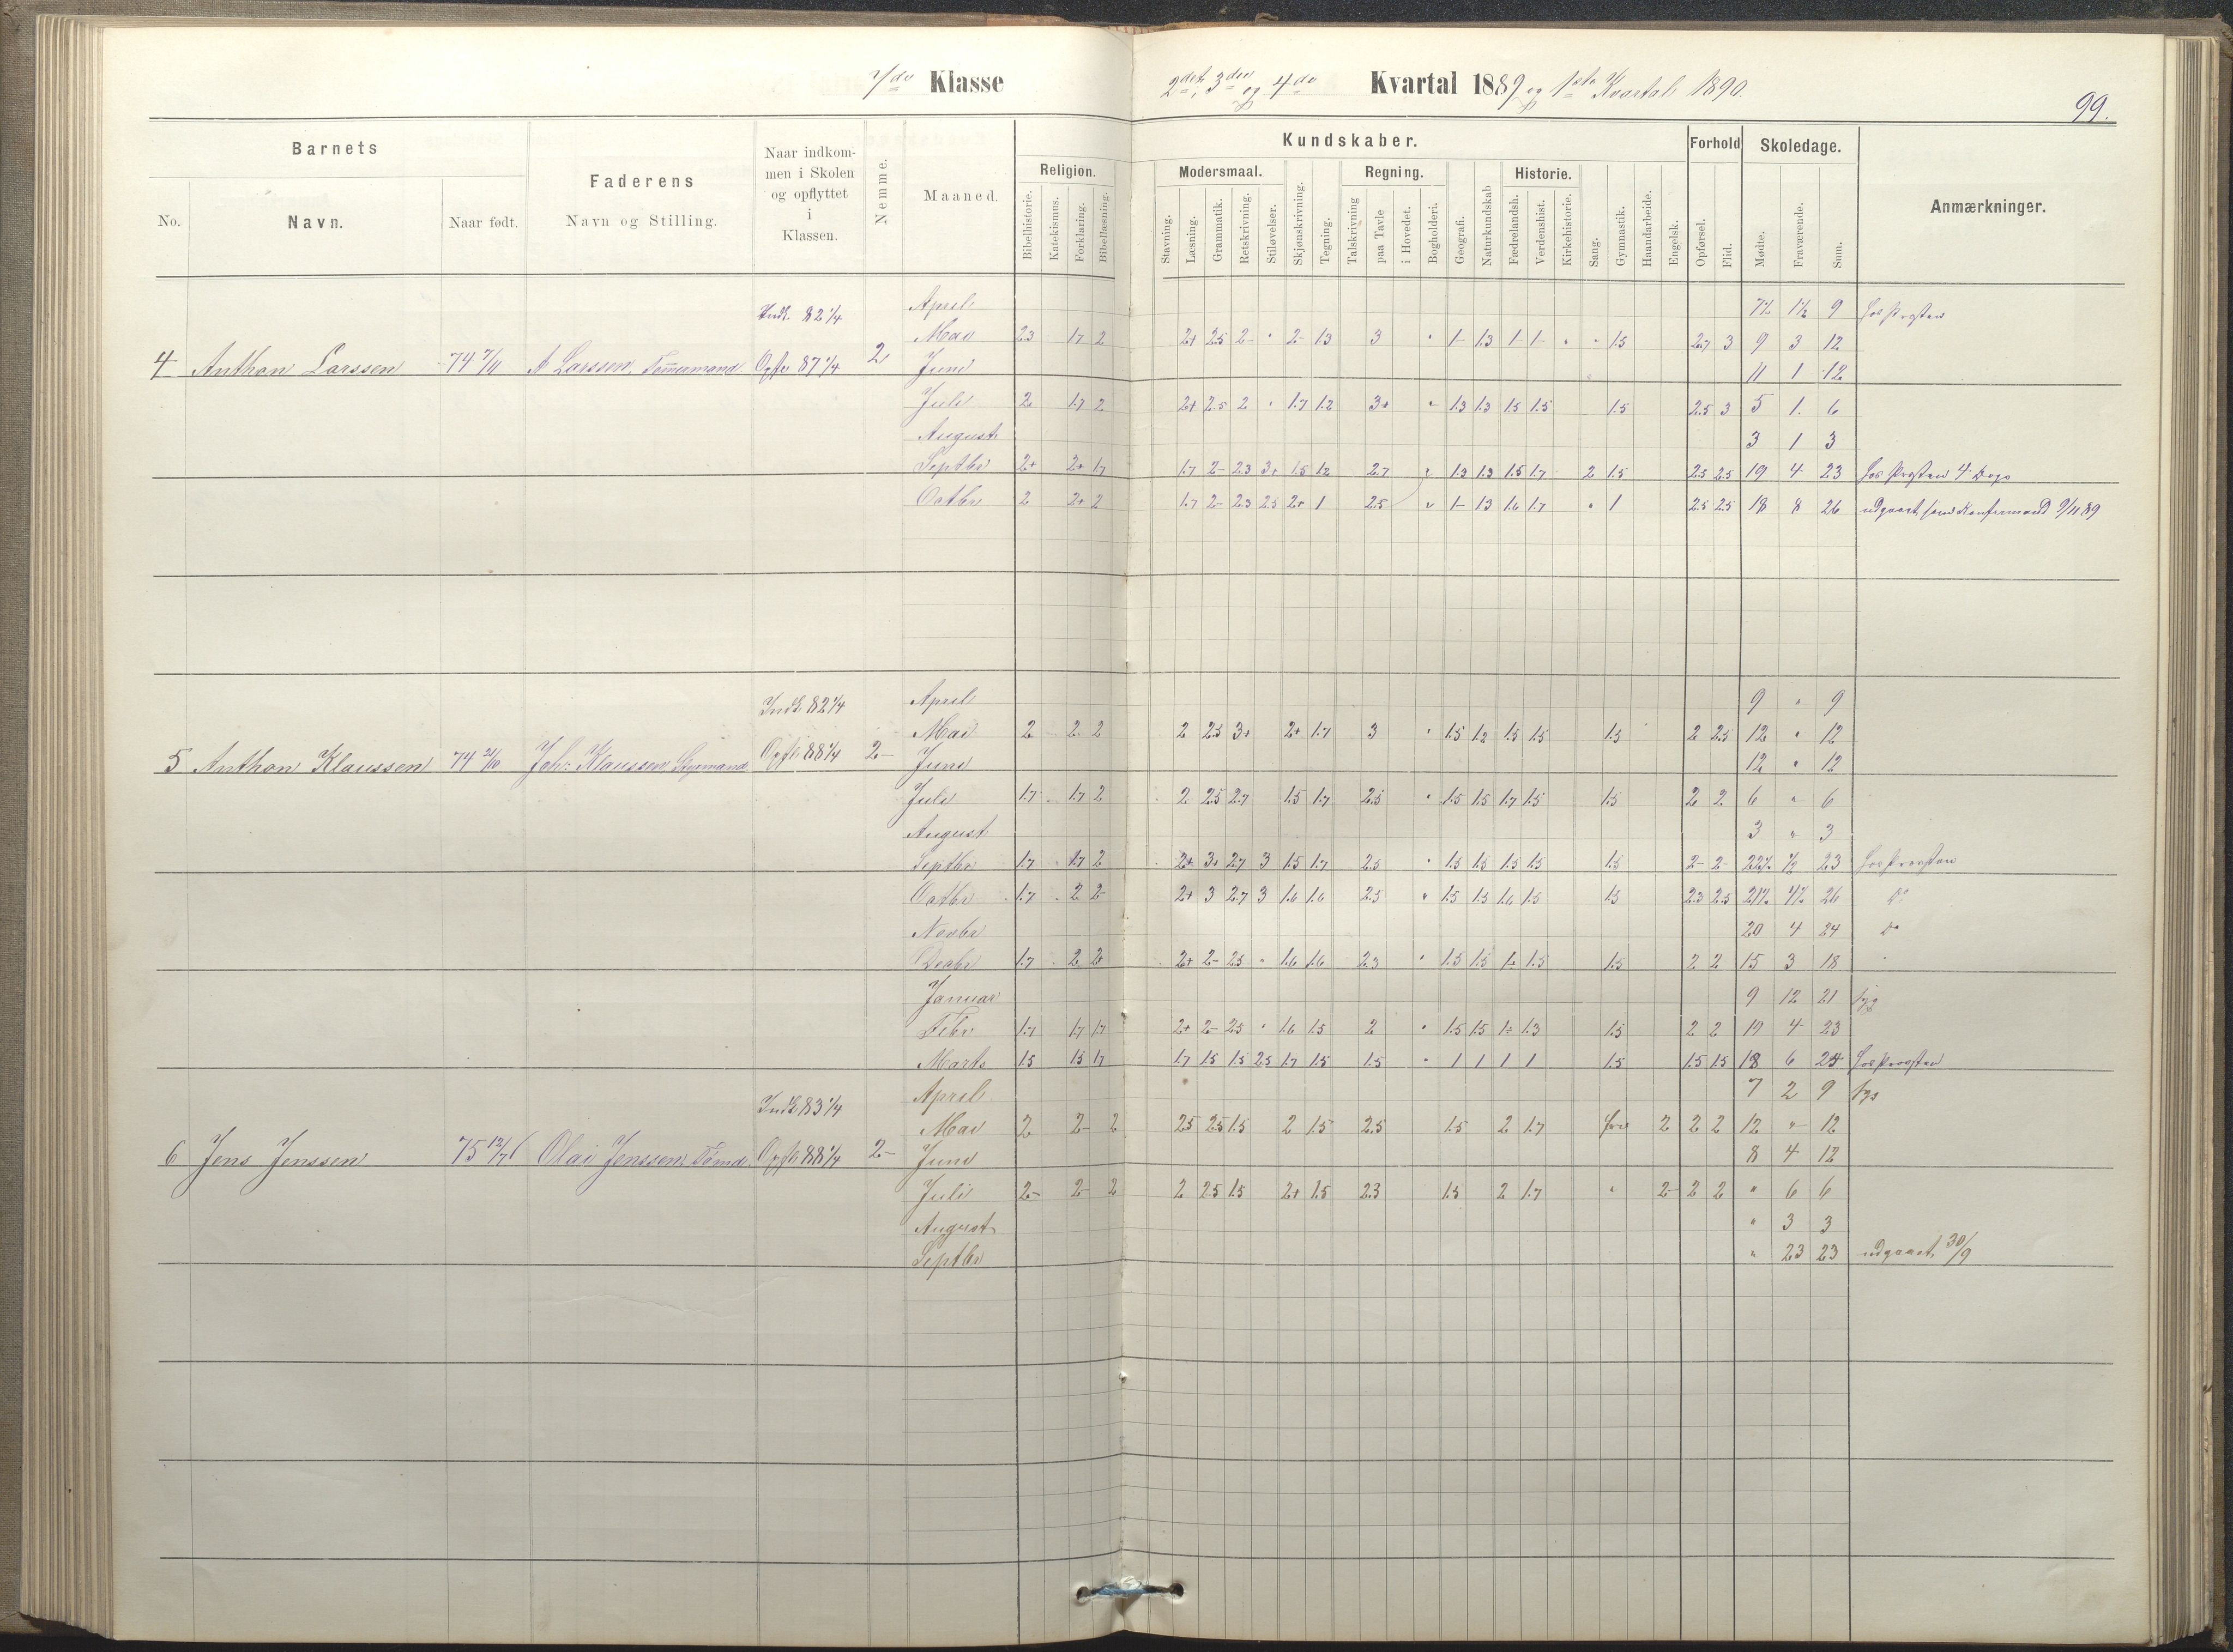 7de Klasse
2det, 3die og 4de Kvartal 1889 og 1ste Kvartal 1890.
99.
Barnets
Faderens
Naar indkommen i Skolen og opflyttet i Klassen.
Nemme.
Maaned.
Kundskaber.
Forhold
Skoledage.
Anmærkninger.
Religion.
Modersmaal.
Regning.
Historie.
No.
Navn.
Naar født.
Navn og Stilling.
Bibelhistorie. Katekismus. Forklaring. Bibellæsning. Stavning. Læsning. Grammatik. Retskrivning. Stiløvelser. Skjønskrivning. Tegning. Talskrivning paa Tavle i Hovedet. Bogholderi. Geografi. Naturkundskab Fædrelandsh. Verdenshist. Kirkehistorie. Sang. Gymnastik. Haandarbeide. Engelsk. Opførsel. Flid. Mødte. Fraværende. Sum.
Indk. 82 1/4 April 7 1/2 1 1/2 9 hos Provsten
Mai 2.3 1.7 2 2+ 2.5 2- " 2- 1.3 3 " 1- 1.3 1- 1- " " 1.5 2.7 3 9 3 12
4 Anthon Larssen 74 7/11 A Larssen, Tømmermand Opfl. 87 1/4 2 Juni 11 1 12
Juli 2 1.7 2 2+ 2.5 2 " 1.7 1.2 3+ " 1.3 1.3 1.5 1.5 1.5 2.5 3 5 1 6
August 3 1 3
Septbr 2+ 2+ 1.7 1.7 2- 2.3 3+ 1.5 1.2 2.7 " 1.3 1.3 1.5 1.7 2 1.5 2.5 2.5 19 4 23 hos Provsten 4 Dage
Octbr 2 2+ 2 1.7 2- 2.3 2.5 2+ 1 2.5 " 1- 1.3 1.6 1.7 " 1 2.5 2.5 18 8 26 udgaaet som Konfirmand 9/11 89
Indk. 82 1/4 April 9 " 9
Mai 2 2 2 2 2.3 3+ 2+ 1.7 3 " 1.5 1.2 1.5 1.5 1.5 2 2.5 12 " 12
5 Anthon Klaussen 74 21/10 Joh: Klaussen Styrmand Opfl. 88 1/4 2- Juni 12 " 12
Juli 1.7 1.7 2 2 2.5 2.7 1.5 1.7 2.5 " 1.5 1.5 1.7 1.5 1.5 2 2 6 " 6
August 3 " 3
Septbr 1.7 1.7 2 2+ 3+ 2.7 3 1.5 1.7 2.5 " 1.5 1.5 1.5 1.5 1.5 2- 2- 22 1/2 1/2 23 hos Provsten
Octbr 1.7 2 2- 2+ 3 2.7 3 1.6 1.6 2.5 " 1.5 1.5 1.6 1.5 1.5 2.3 2.5 21 1/2 4 1/2 26 Do
Novbr 20 4 24 Do
Decbr 1.7 2 2 2+ 2- 2.5 " 1.6 1.6 2.3 " 1.5 1.5 1.5 1.5 2 2 15 3 18
Januar 9 12 21 syg
Febr 1.7 1.7 1.7 2+ 2- 2.5 " 1.6 1.5 2 " 1.5 1.5 1.3 1.5 2 2 19 4 23
Marts 1.5 1.5 1.7 1.7 1.5 1.5 2.5 1.7 1.5 1.5 " 1 1 1 1 1.5 1.5 1.5 18 6 24 hos Provsten
Indk. 83 1/4 April 7 2 9 syg
Mai 2 2- 2 2.5 2.5 1.5 2 1.5 2.5 1.5 2 1.7 fri 2 2 2 12 " 12
6 Jens Jenssen 75 12/7 Olai Jenssen. Tømd. Opfl. 88 1/4 2- Juni 8 4 12
Juli 2- 2- 2 2 2.5 1.5 2+ 1.5 2.3 1.5 2 1.7 " 2- 2 2 " 6 6
August " 3 3
Septbr " 23 23 udgaaet 30/9